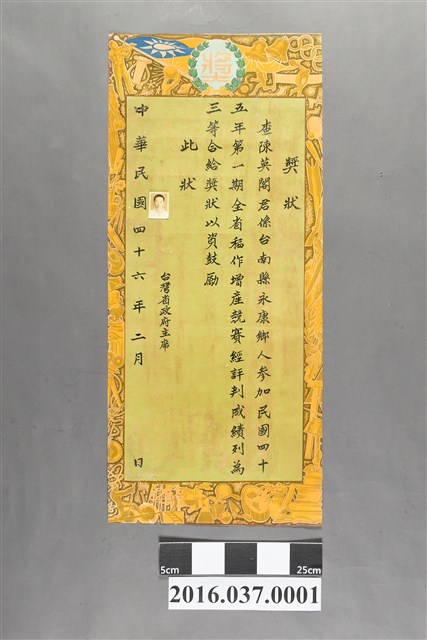 獎
獎狀
查陳英閣君係台南縣永康鄉人參加民國四十
五年第一期全省稻作增產競賽經評判成績列為
三等合給獎狀以資鼓勵
此狀
台灣省政府主席
中華民國四十六年二月 日
5cm 25cm
2016.037.0001